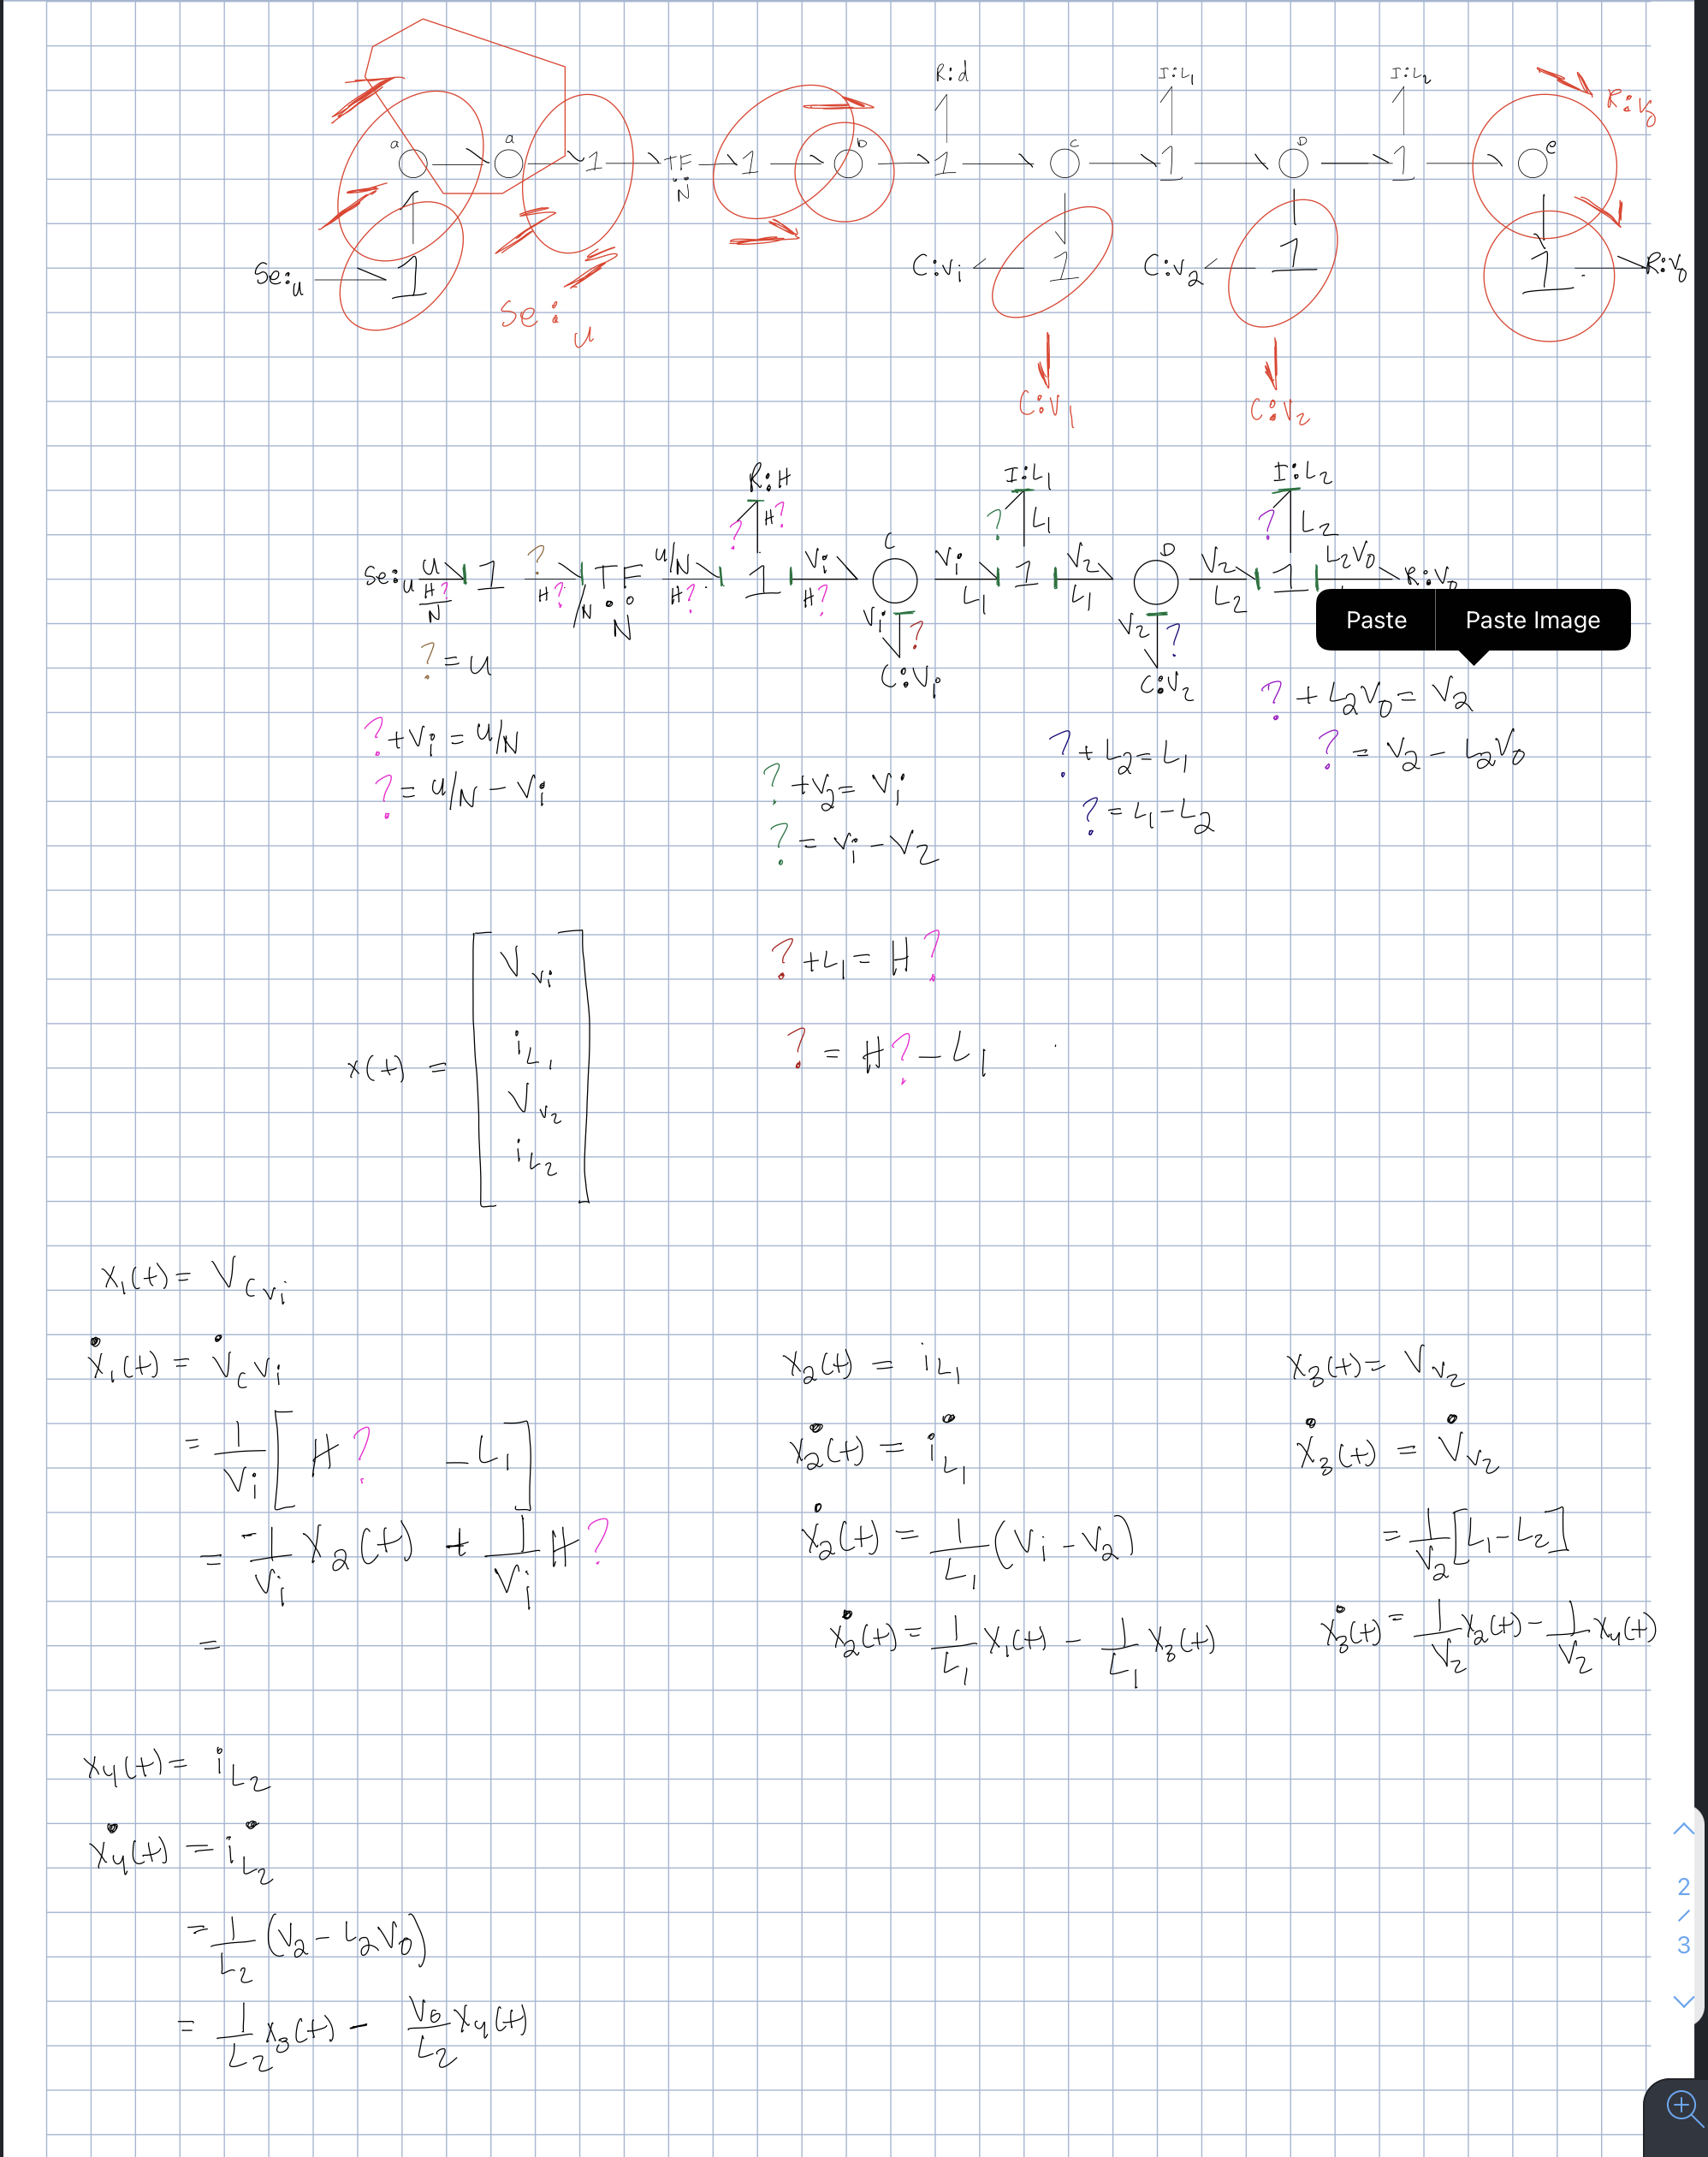 R:d I:L₁ I:L₂ R:V₀
a a 1 TF 1 b 1 c 1 D 1 e
N
Se:u 1 C:Vi 1 C:V₂ 1 1 R:V₀
Se:u
C:V₁ C:V₂
R:H I:L₁ I:L₂
H? ? ? L₁ ? L₂
C D
Se:u u 1 ? TF u/N 1 Vi Vi 1 V₂ V₂ 1 L₂V₀ R:V₀
H?/N H?/N N H? H? L₁ L₁ L₂
Vi ? V₂ ?
C:Vi C:V₂
Paste Paste Image
? = u
? + L₂V₀ = V₂
?+Vi = u/N
? + L₂ = L₁
? = V₂ - L₂V₀
? = u/N - Vi
? +V₂ = Vi
? = L₁-L₂
? = Vi - V₂
x(t) = [ V_Vi
i_L₁
V_V₂
i_L₂ ]
? +L₁ = H ?
? = H? - L₁
x₁(t) = V_CVi
ẋ₁(t) = V̇_CVi
= 1/Vi [ H ? - L₁ ]
= -1/Vi x₂(t) + 1/Vi H?
=
x₂(t) = i_L₁
ẋ₂(t) = i̇_L₁
ẋ₂(t) = 1/L₁ (Vi - V₂)
ẋ₂(t) = 1/L₁ x₁(t) - 1/L₁ x₃(t)
x₃(t) = V_V₂
ẋ₃(t) = V̇_V₂
= 1/V₂ [L₁-L₂]
ẋ₃(t) = 1/V₂ x₂(t) - 1/V₂ x₄(t)
x₄(t) = i_L₂
ẋ₄(t) = i̇_L₂
= 1/L₂ (V₂ - L₂V₀)
= 1/L₂ x₃(t) - V₀/L₂ x₄(t)
2
/
3